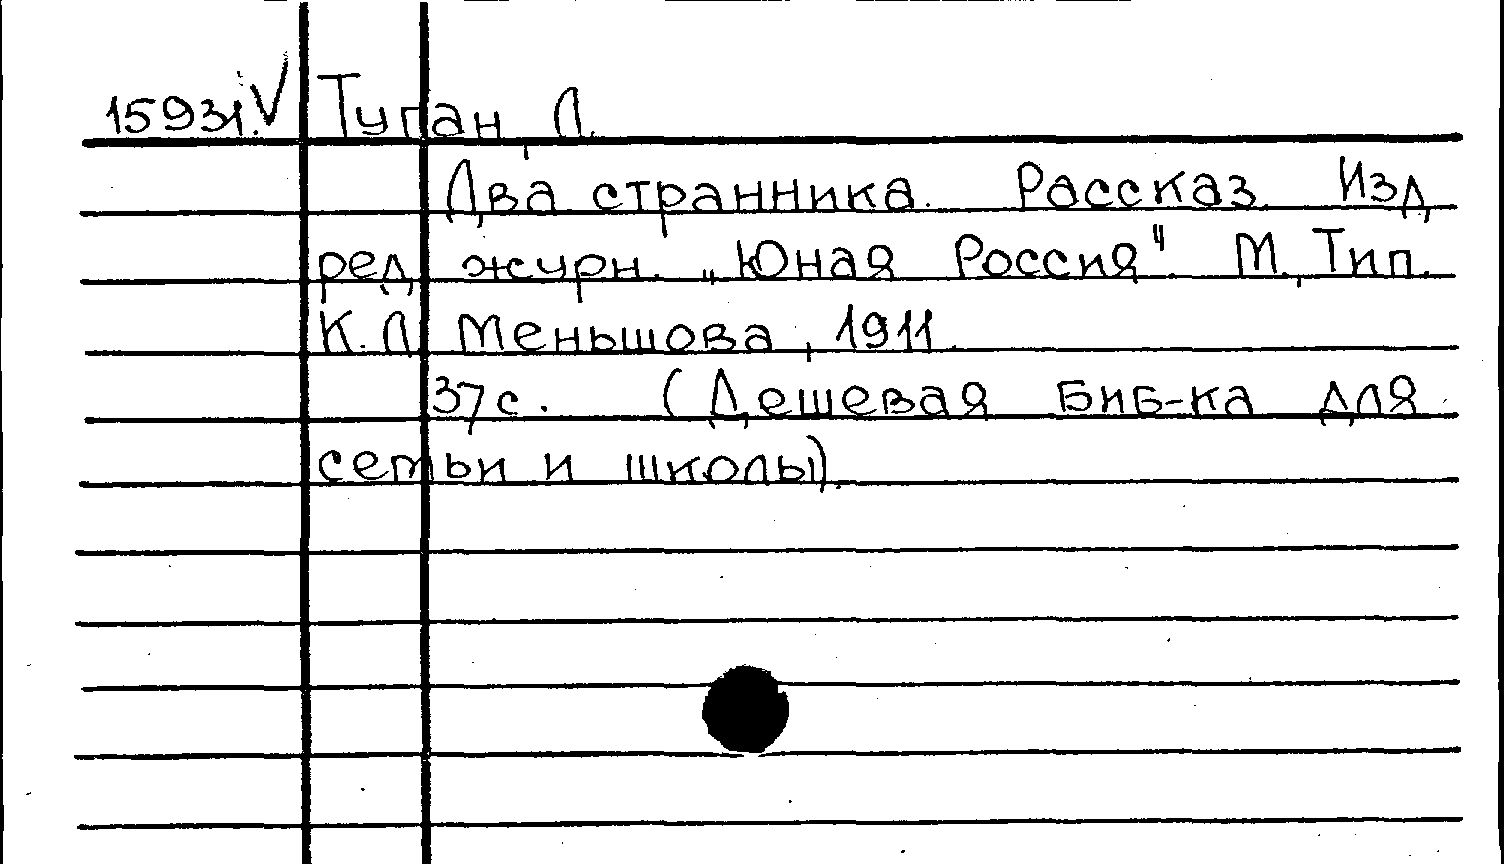 15931.V Туган, Л.
Два странника. Рассказ. Изд.
ред. журн. „Юная Россия". М., Тип.
К.Л. Меньшова, 1911.
37с. (Дешевая биб-ка для
семьи и школы).